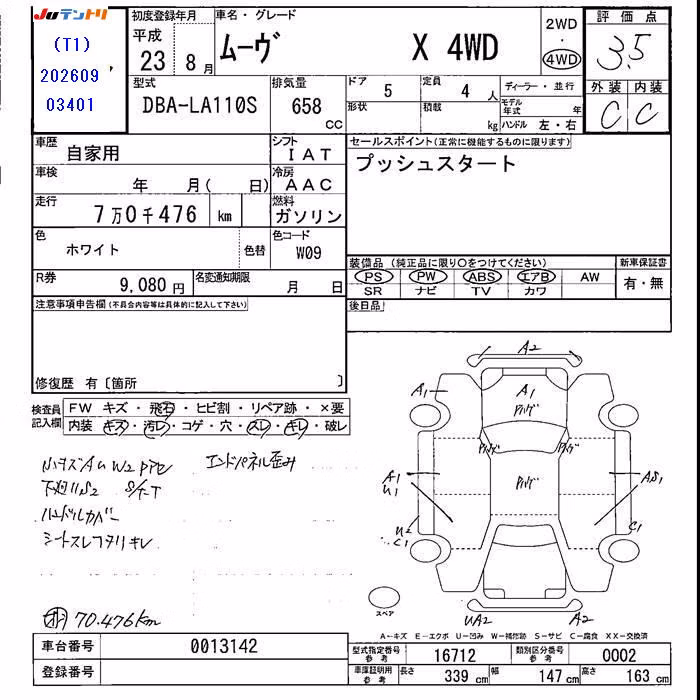 JUテントリ
(T1)
202609
03401
初度登録年月
平成
23 8月
車名・グレード
ムーヴ X 4WD
2WD
4WD
評価点
3.5
外装 内装
C C
型式
DBA-LA110S
排気量
658
CC
ドア 5
定員 4 人
形状
積載 kg
ディーラー・並行
モデル年式 年
ハンドル 左・右
車歴 自家用
シフト IAT
車検 年 月( 日)
冷房 AAC
走行 7万0千476 km
燃料 ガソリン
色 ホワイト 色替
色コード W09
R券 9,080円
名変通知期限 月 日
セールスポイント(正常に機能するものに限ります)
プッシュスタート
装備品(純正品に限り○をつけてください) 新車保証書
PS PW ABS エアB AW 有・無
SR ナビ TV カワ
後日品
注意事項申告欄(不具合内容等は具体的に記入して下さい)
修復歴 有〔箇所 〕
検査員記入欄
FW キズ・飛石・ヒビ割・リペア跡・×要
内装 キズ・汚レ・コゲ・穴・スレ・キレ・破レ
エンドパネル歪み
下廻りS2 S/F-T
ハンドルカバー
シートスレ
70.476km
A2
A1 A1
A1
U1
AS1
U2
C1
C1
スペア
UA2 A2
A-キズ E-エクボ U-凹み W-補修跡 S-サビ C-腐食 XX-交換済
車台番号 0013142
登録番号
型式指定番号 参考 16712
類別区分番号 参考 0002
車庫証明用 参考 長さ 339 cm 幅 147 cm 高さ 163 cm